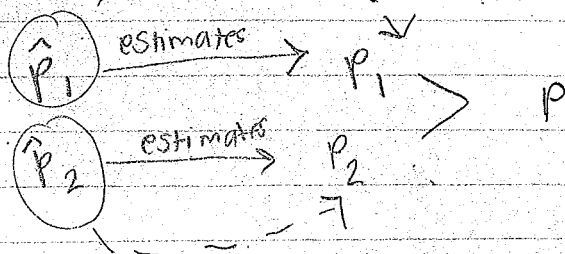 p̂₁ estimates p₁
p
p̂₂ estimates p₂